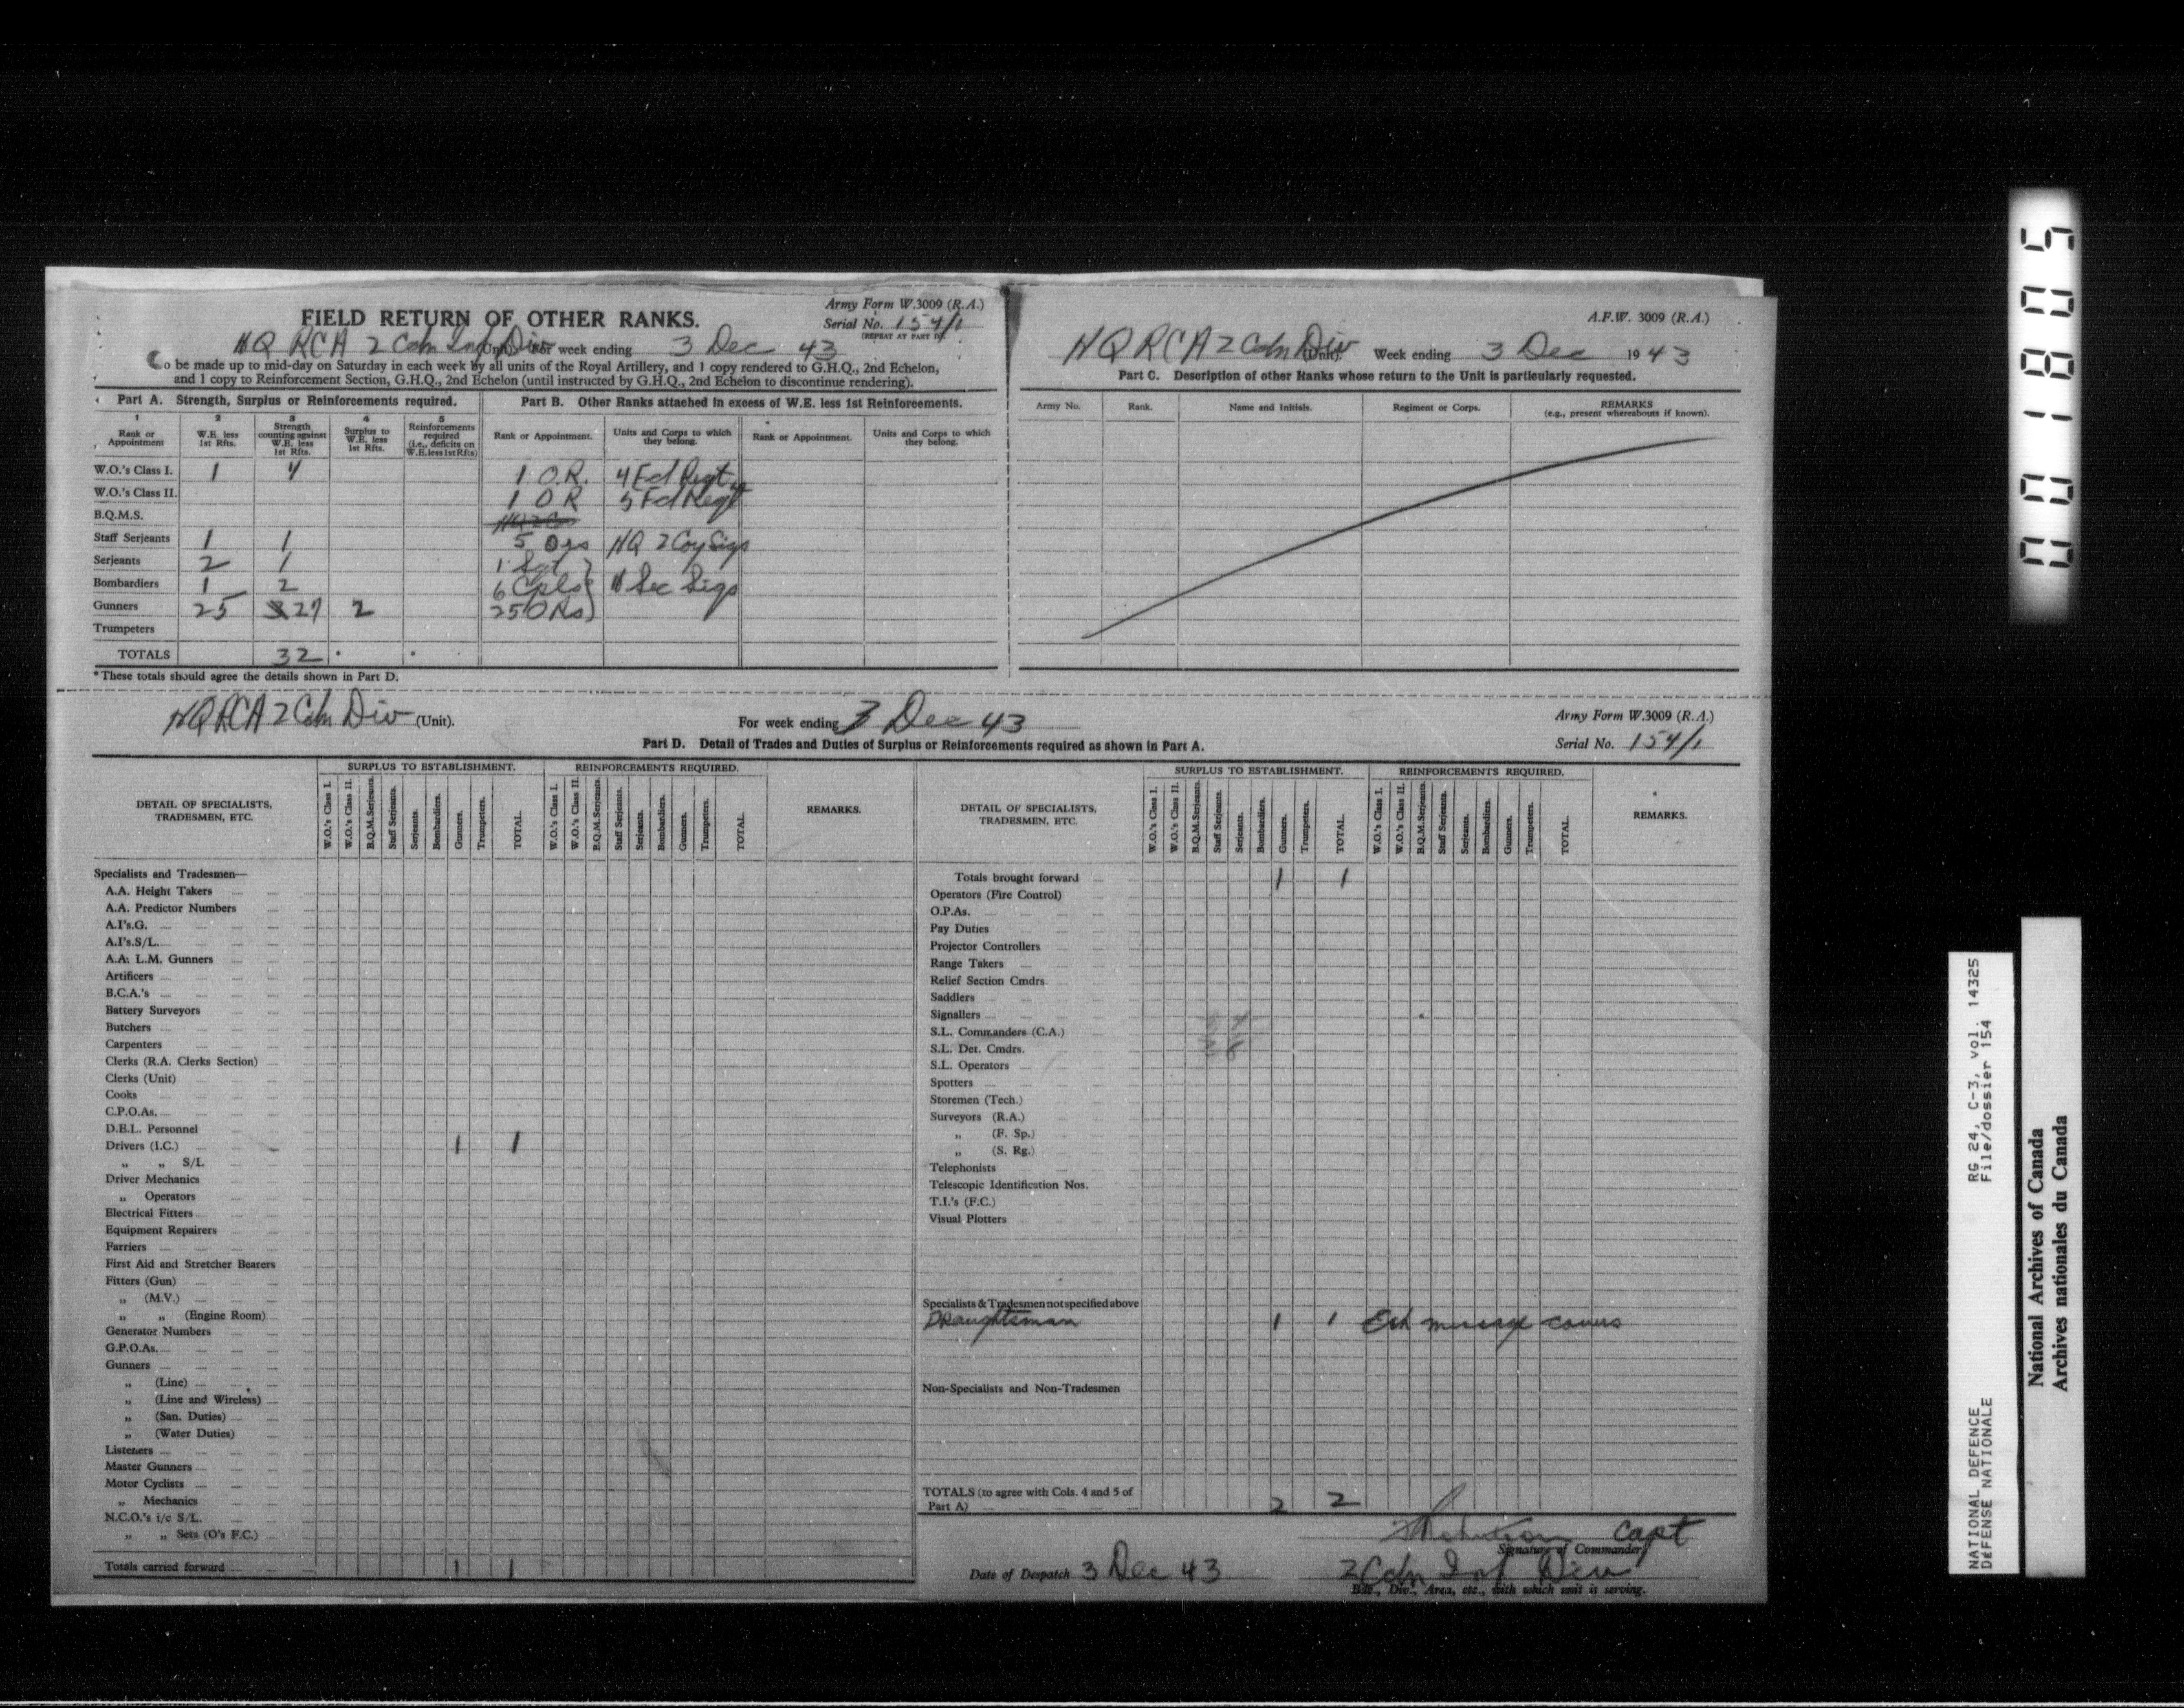 Army Form W.3009 (R.A.)
FIELD RETURN OF OTHER RANKS.
Serial No. 154/1
(REPEAT AT PART D).
HQ RCA 2 Cdn Inf Div (Unit). For week ending 3 Dec 43
To be made up to mid-day on Saturday in each week by all units of the Royal Artillery, and 1 copy rendered to G.H.Q., 2nd Echelon,
and 1 copy to Reinforcement Section, G.H.Q., 2nd Echelon (until instructed by G.H.Q., 2nd Echelon to discontinue rendering).
Part A. Strength, Surplus or Reinforcements required.
1 2 3 4 5
Rank or Appointment W.E. less 1st Rfts. Strength counting against W.E. less 1st Rfts. Surplus to W.E. less 1st Rfts. Reinforcements required (i.e., deficits on W.E. less 1st Rfts)
W.O.'s Class I. 1
W.O.'s Class II.
B.Q.M.S.
Staff Serjeants 1 1
Serjeants 2 1
Bombardiers 1 2
Gunners 25 27 2
Trumpeters
TOTALS 32 * *
*These totals should agree the details shown in Part D.
Part B. Other Ranks attached in excess of W.E. less 1st Reinforcements.
Rank or Appointment. Units and Corps to which they belong. Rank or Appointment. Units and Corps to which they belong.
1 O.R. 4 Fd Regt
1 O R 5 Fd Regt
5 Ors HQ 2 Coy Sigs
1 Sgt
6 Cpls Sec Sigs
25 ORs
A.F.W. 3009 (R.A.)
HQ RCA 2 Cdn Div (Unit). Week ending 3 Dec 1943
Part C. Description of other Ranks whose return to the Unit is particularly requested.
Army No. Rank. Name and Initials. Regiment or Corps. REMARKS
(e.g., present whereabouts if known).
HQ RCA 2 Cdn Div (Unit). For week ending 3 Dec 43
Army Form W.3009 (R.A.)
Part D. Detail of Trades and Duties of Surplus or Reinforcements required as shown in Part A.
Serial No. 154/1
DETAIL OF SPECIALISTS, TRADESMEN, ETC.
SURPLUS TO ESTABLISHMENT. REINFORCEMENTS REQUIRED. REMARKS.
W.O.'s Class I. W.O.'s Class II. B.Q.M.Serjeants. Staff Serjeants. Serjeants. Bombardiers. Gunners. Trumpeters. TOTAL.
W.O.'s Class I. W.O.'s Class II. B.Q.M.Serjeants. Staff Serjeants. Serjeants. Bombardiers. Gunners. Trumpeters. TOTAL.
Specialists and Tradesmen—
A.A. Height Takers
A.A. Predictor Numbers
A.I's.G.
A.I's.S/L.
A.A. L.M. Gunners
Artificers
B.C.A.'s
Battery Surveyors
Butchers
Carpenters
Clerks (R.A. Clerks Section)
Clerks (Unit)
Cooks
C.P.O.As.
D.E.L. Personnel
Drivers (I.C.) 1 1
„ „ S/L
Driver Mechanics
„ Operators
Electrical Fitters
Equipment Repairers
Farriers
First Aid and Stretcher Bearers
Fitters (Gun)
„ (M.V.)
„ „ (Engine Room)
Generator Numbers
G.P.O.As.
Gunners
„ (Line)
„ (Line and Wireless)
„ (San. Duties)
„ (Water Duties)
Listeners
Master Gunners
Motor Cyclists
„ Mechanics
N.C.O.'s i/c S/L.
„ „ Sets (O's F.C.)
Totals carried forward 1 1
DETAIL OF SPECIALISTS, TRADESMEN, ETC.
SURPLUS TO ESTABLISHMENT. REINFORCEMENTS REQUIRED. REMARKS.
W.O.'s Class I. W.O.'s Class II. B.Q.M.Serjeants. Staff Serjeants. Serjeants. Bombardiers. Gunners. Trumpeters. TOTAL.
W.O.'s Class I. W.O.'s Class II. B.Q.M.Serjeants. Staff Serjeants. Serjeants. Bombardiers. Gunners. Trumpeters. TOTAL.
Totals brought forward 1 1
Operators (Fire Control)
O.P.As.
Pay Duties
Projector Controllers
Range Takers
Relief Section Cmdrs.
Saddlers
Signallers
S.L. Commanders (C.A.)
S.L. Det. Cmdrs.
S.L. Operators
Spotters
Storemen (Tech.)
Surveyors (R.A.)
„ (F. Sp.)
„ (S. Rg.)
Telephonists
Telescopic Identification Nos.
T.I.'s (F.C.)
Visual Plotters
Specialists & Tradesmen not specified above
Draughtsman 1 1 message
Non-Specialists and Non-Tradesmen
TOTALS (to agree with Cols. 4 and 5 of
Part A) 2 2
Capt
Signature of Commander
Date of Despatch 3 Dec 43 2 Cdn Inf Div
Bde., Div., Area, etc., with which unit is serving.
001805
NATIONAL DEFENCE RG 24, C-3, vol. 14325
DÉFENSE NATIONALE File/dossier 154
National Archives of Canada
Archives nationales du Canada